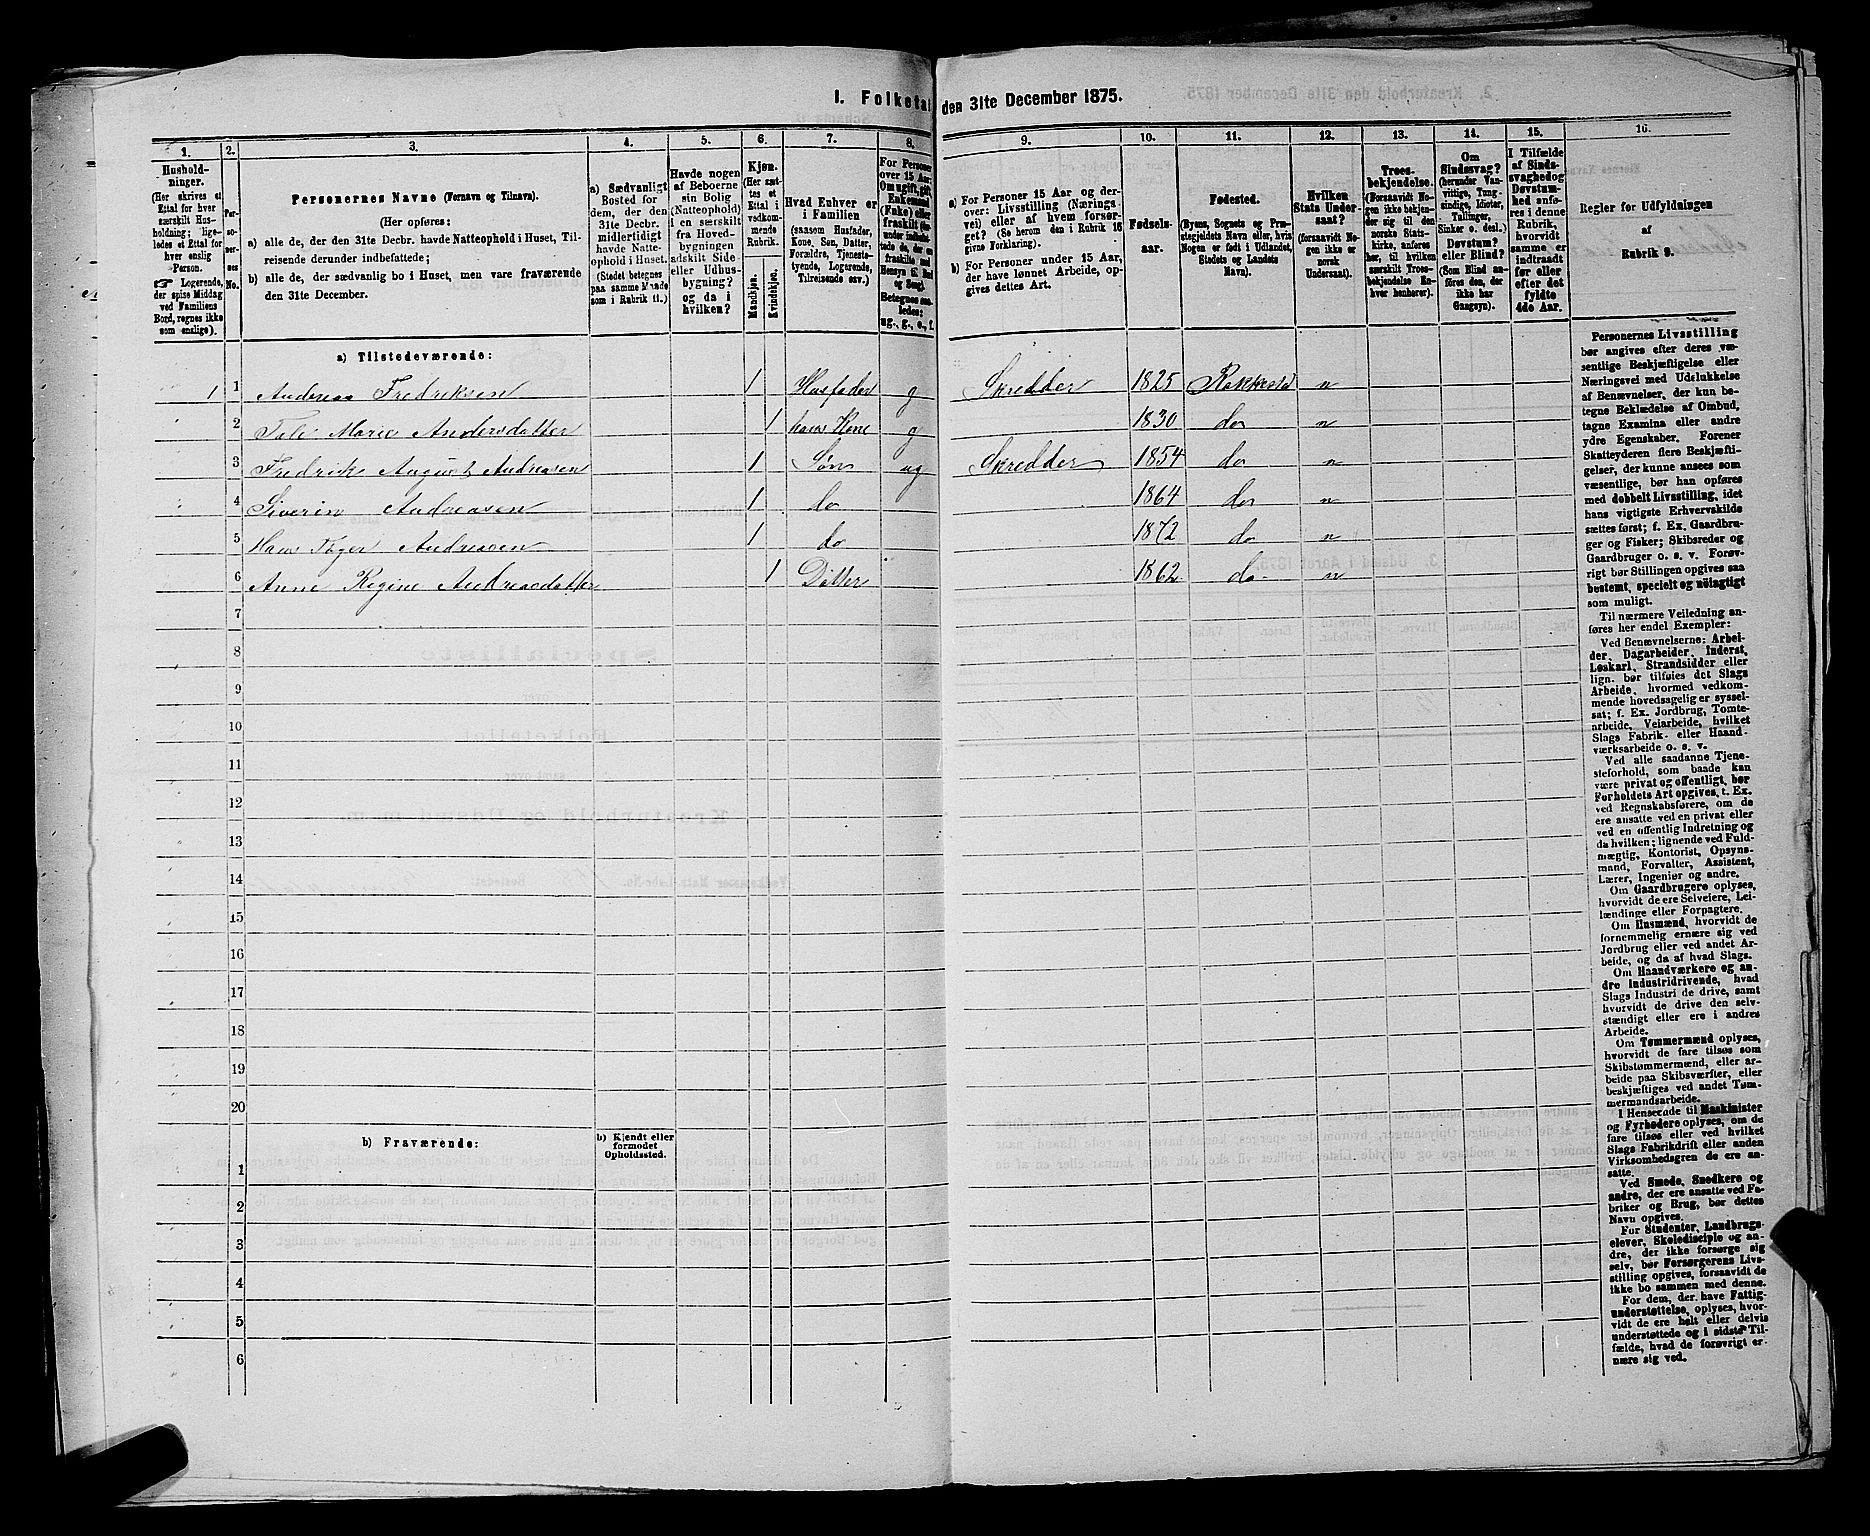 I. Folketal den 31te December 1875.
1. 2. 3. 4. 5. 6. 7. 8. 9. 10. 11. 12. 13. 14. 15. 16.
Hushold-
ninger.
(Her skrives et
Ettal for hver
særskilt Hus-
holdning; lige-
ledes et Ettal for
hver enslig
Person.
☞ Logerende,
der spise Middag
ved Familiens
Bord, regnes ikke
som enslige).
Per-
so-
ner-
nes
No.
Personernes Navne (Fornavn og Tilnavn).
(Her opføres:
a) alle de, der den 31te Decbr. havde Natteophold i Huset, Til-
reisende derunder indbefattede;
b) alle de, der sædvanlig bo i Huset, men vare fraværende
den 31te December.
a) Sædvanligt
Bosted for
dem, der den
31te Decbr.
midlertidigt
havde Natte-
ophold i Huset.
(Stedet betegnes
paa samme Maade
som i Rubrik 11.)
Havde nogen
af Beboerne
sin Bolig
(Natteophold)
i en særskilt
fra Hoved-
bygningen
adskilt Side-
eller Udhus-
bygning?
og da i
hvilken?
Kjøn.
(Her sæt-
tes et
Ettal i
vedkom-
mende
Rubrik.
Mandkjøn.
Kvindekjøn.
Hvad Enhver er
i Familien
(saasom Husfader,
Kone, Søn, Datter,
Forældre, Tjeneste-
tyende, Logerende,
Tilreisende osv.)
For Personer
over 15 Aar:
Om ugift, gift,
Enkemand
(Enke) eller
fraskilt (her-
under indbefat-
tede de, der ere
fraskilte med
Hensyn til Bord
og Seng).
Betegnes saa-
ledes:
ug., g., e., f.
a) For Personer 15 Aar og der-
over: Livsstilling (Nærings-
vei) eller af hvem forsør-
get? (Se herom den i Rubrik 16
givne Forklaring).
b) For Personer under 15 Aar,
der have lønnet Arbeide, op-
gives dettes Art.
Fødsels-
aar.
Fødested.
(Byens, Sognets og Præ-
stegjeldets Navn eller, hvis
Nogen er født i Udlandet,
Stedets og Landets
Navn).
Hvilken
Stats Under-
saat?
(forsaavidt No-
gen ikke er
norsk
Undersaat).
Troes-
bekjendelse.
(Forsaavidt No-
gen ikke bekjen-
der sig til den
norske Stats-
kirke, anføres
her, til hvilken
særskilt Troes-
bekjendelse En-
hver henhører).
Om
Sindssvag?
(herunder Van-
vittige, Tung-
sindige, Idioter,
Tullinger,
Sinker o. desl.)
Døvstum?
eller Blind?
(Som Blind an-
føres den, der
ikke har
Gangsyn).
I Tilfælde
af Sinds-
svaghed og
Døvstum-
hed anfø-
res i denne
Rubrik,
hvorvidt
samme er
indtraadt
før eller
efter det
fyldte
4de Aar.
Regler for Udfyldningen
af
Rubrik 9.
a) Tilstedeværende:
1 1 Andreas Fredriksen 1 Husfader g Skredder 1825 Rakkestad n
2 Tale Marie Andersdatter 1 hans Kone g 1830 do n
3 Fredrik August Andreasen 1 Søn ug Skredder 1854 do n
4 Siverin Andreasen 1 do 1864 do n
5 Hans Andreasen 1 do 1872 do n
6 Anne Regine Andreasdatter 1 Datter 1862 do n
7
8
9
10
11
12
13
14
15
16
17
18
19
20
b) Fraværende:
b) Kjendt eller
formodet
Opholdssted.
1
2
3
4
5
6
Personernes Livsstilling
bør angives efter deres væ-
sentlige Beskjæftigelse eller
Næringsvei med Udelukkelse
af Benævnelser, der kun be-
tegne Beklædelse af Ombud,
tagne Examina eller andre
ydre Egenskaber. Forener
Skatteyderen flere Beskjæfti-
gelser, der kunne ansees som
væsentlige, bør han opføres
med dobbelt Livsstilling, idet
hans vigtigste Erhvervskilde
sættes først; f. Ex. Gaardbru-
ger og Fisker; Skibsreder og
Gaardbruger o. s. v. Forøv-
rigt bør Stillingen opgives saa
bestemt, specielt og nøiagtigt
som muligt.
Til nærmere Veiledning an-
føres her endel Exempler:
Ved Benævnelserne: Arbei-
der, Dagarbeider, Inderst,
Løskarl, Strandsidder eller
lign. bør tilføies det Slags
Arbeide, hvormed vedkom-
mende hovedsagelig er syssel-
sat; f. Ex. Jordbrug, Tomte-
arbeide, Veiarbeide, hvilket
Slags Fabrik- eller Haand-
værksarbeide o. s. v.
Ved alle saadanne Tjene-
steforhold, som baade kan
være privat og offentligt, bør
Forholdets Art opgives, t. Ex.
ved Regnskabsførere, om de
ere ansatte ved en privat eller
ved en offentlig Indretning og
da hvilken; lignende ved Fuld-
mægtig, Kontorist, Opsyns-
mand, Forvalter, Assistent,
Lærer, Ingeniør og andre.
Om Gaardbrugere oplyses,
hvorvidt de ere Selveiere, Lei-
lændinge eller Forpagtere.
Om Husmænd, hvorvidt de
fornemmelig ernære sig ved
Jordbrug eller ved andet Ar-
beide, og da af hvad Slags.
Om Haandværkere og an-
dre Industridrivende, hvad
Slags Industri de drive, samt
hvorvidt de drive den selv-
stændigt eller ere i andres
Arbeide.
Om Tømmermænd oplyses,
hvorvidt de fare tilsøs som
Skibstømmermænd, eller ar-
beide paa Skibsværfter, eller
beskjæftiges ved andet Tøm-
mermandsarbeide.
I Henseende til Maskinister
og Fyrbødere oplyses, om de
fare tilsøs eller ved hvilket
Slags Fabrikdrift eller anden
Virksomhedsgren de ere an-
satte.
Ved Smede, Snedkere og
andre, der ere ansatte ved Fa-
briker og Brug, bør dettes
Navn opgives.
For Studenter, Landbrugs-
elever, Skoledisciple og an-
dre, der ikke forsørge sig
selv, bør Forsørgerens Livs-
stilling opgives, forsaavidt de
ikke bo sammen med denne.
For dem, der have Fattig-
understøttelse, oplyses, hvor-
vidt de ere helt eller delvis
understøttede og i sidste Til-
fælde, hvad de forøvrigt er-
nære sig ved.